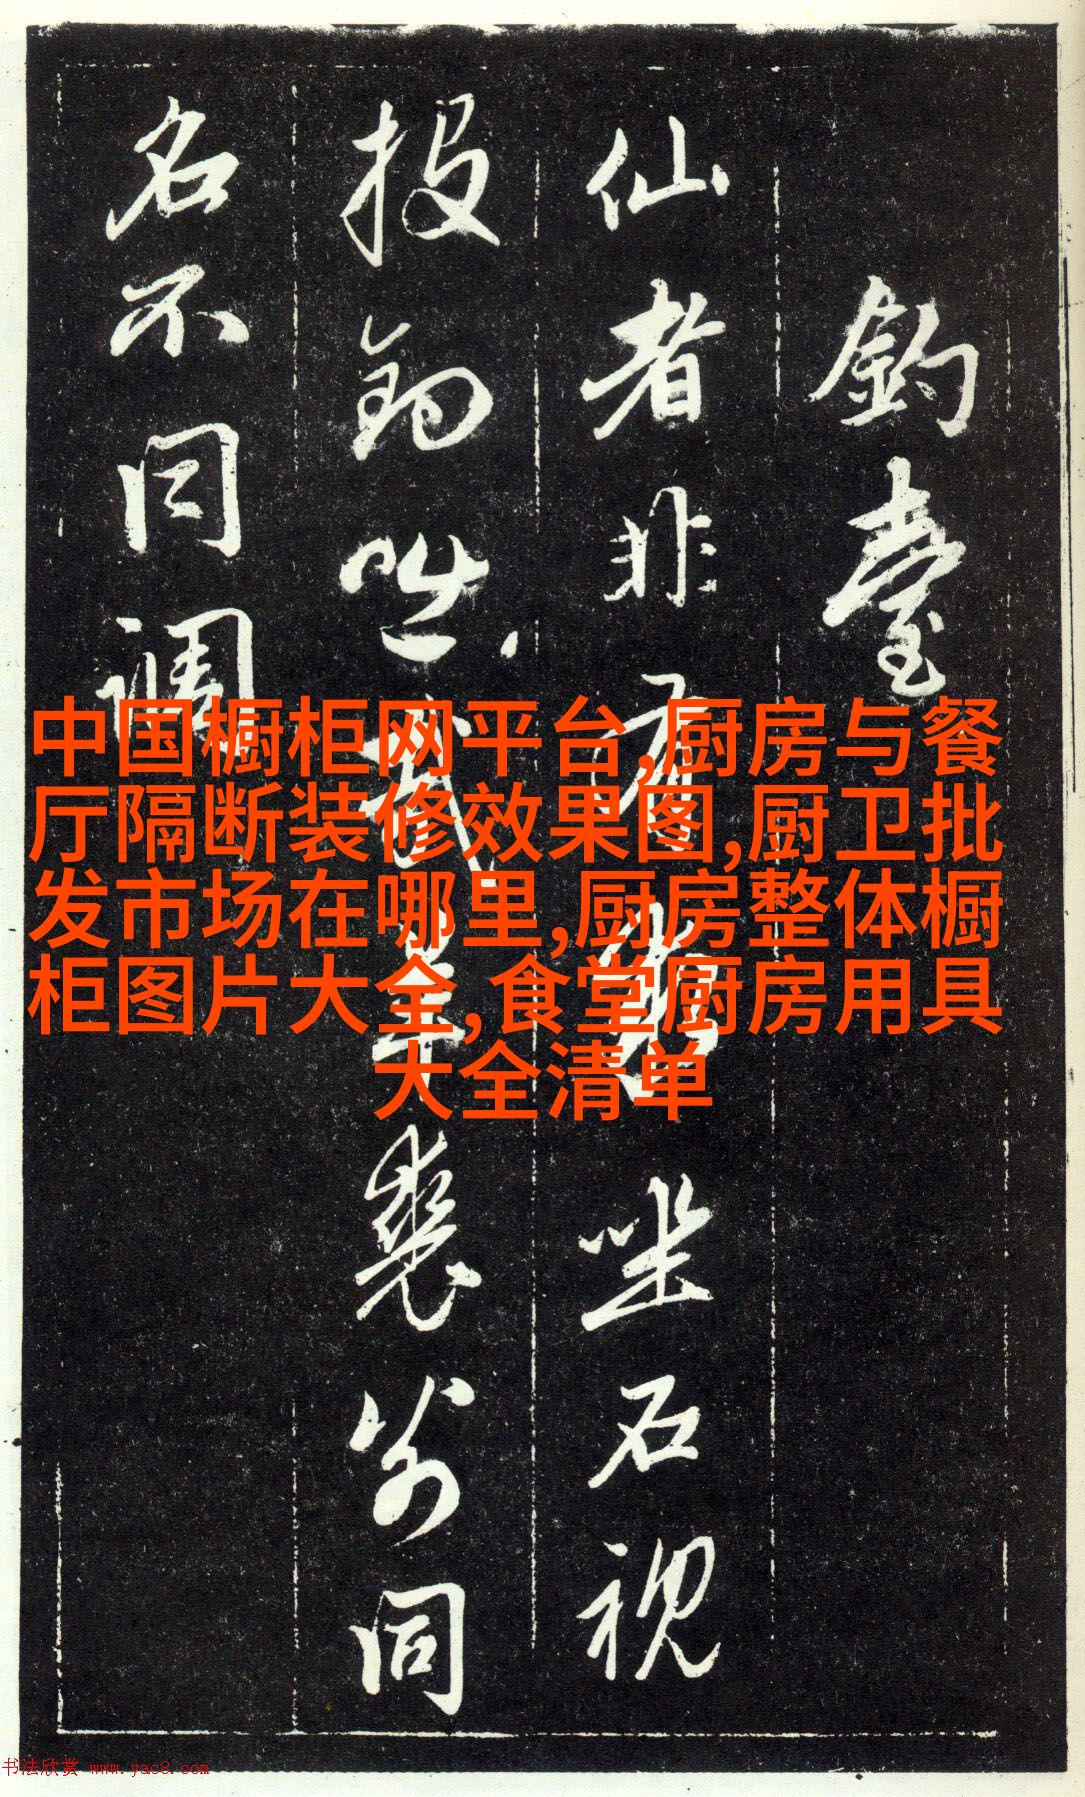 釣臺
仙者非有 坐石視
投鉤 裘前同
名不同調
中国橱柜网平台,厨房与餐
厅隔断装修效果图,厨卫批
发市场在哪里,厨房整体橱
柜图片大全,食堂厨房用具
大全清单
书法欣赏 www.yac8.com